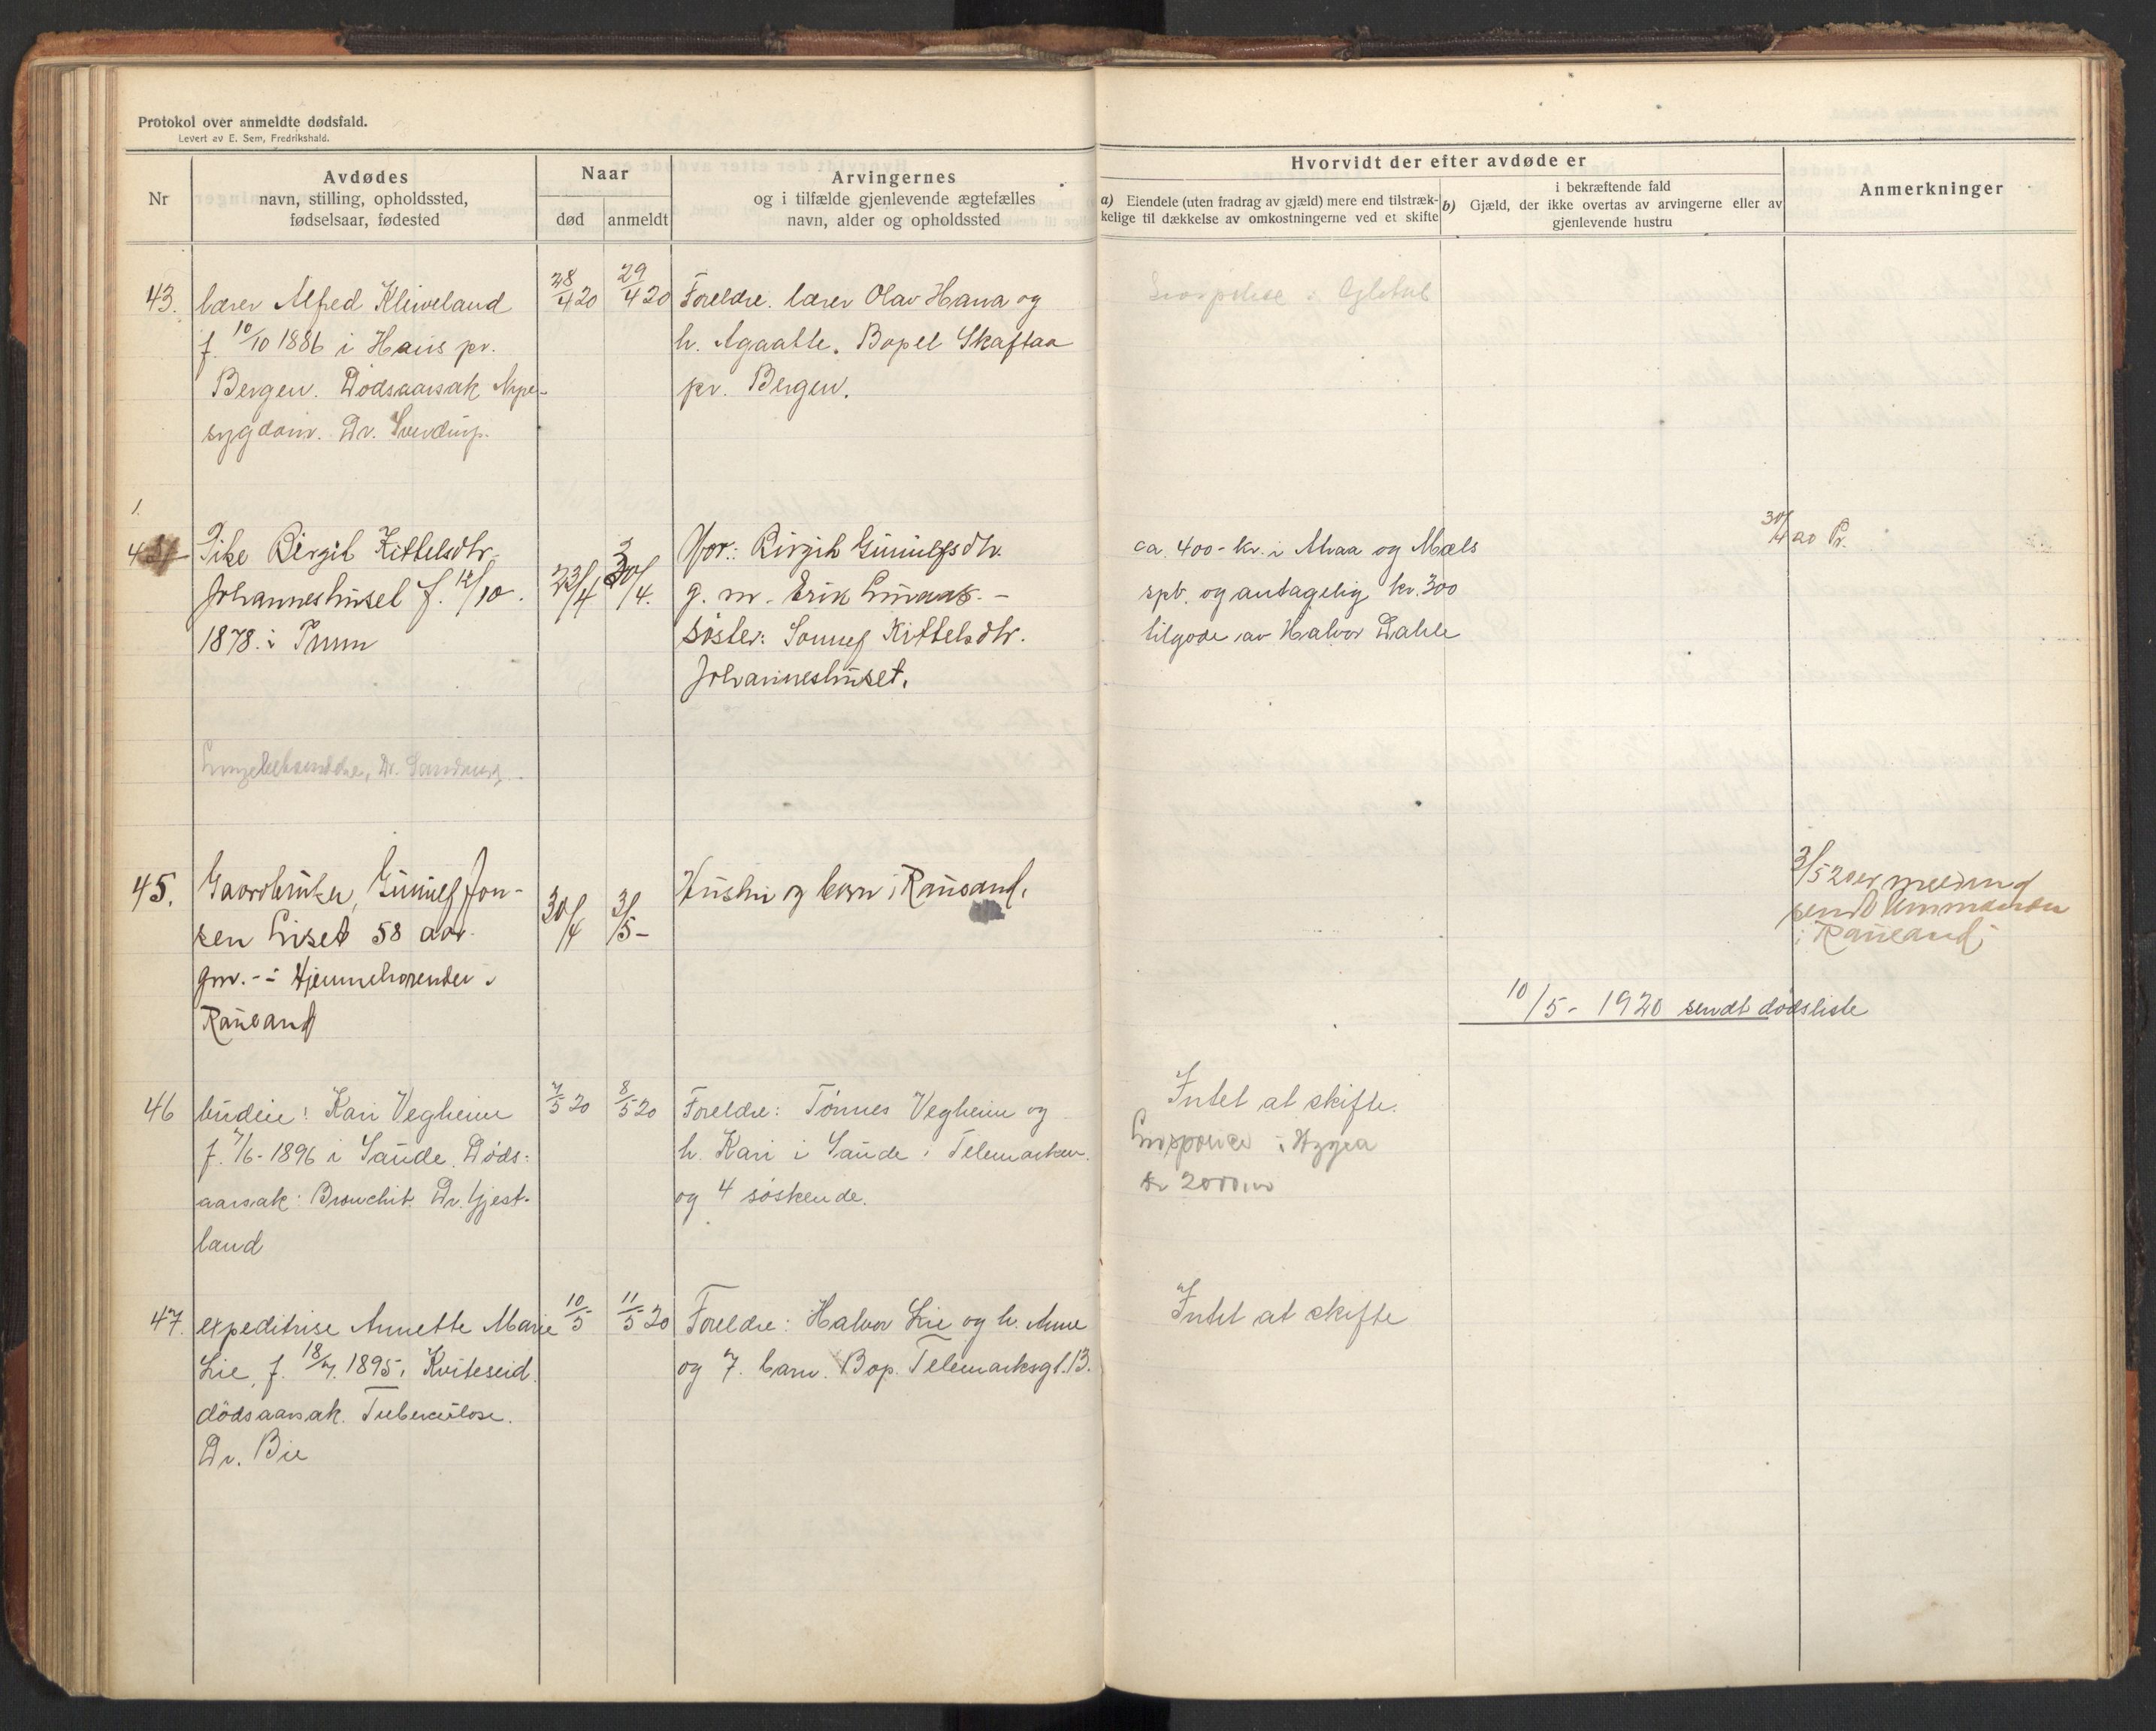 Protokol over anmeldte dødsfald.
Levert av E. Sem, Fredrikshald.
Nr
Avdødes
navn, stilling, opholdssted,
fødselsaar, fødested
Naar
død
anmeldt
Arvingernes
og i tilfælde gjenlevende ægtefælles
navn, alder og opholdssted
Hvorvidt der efter avdøde er
a) Eiendele (uten fradrag av gjæld) mere end tilstræk-
kelige til dækkelse av omkostningerne ved et skifte
i bekræftende fald
b) Gjæld, der ikke overtas av arvingerne eller av
gjenlevende hustru
Anmerkninger
43.
lærer Alfred Kleiveland
f. 10/10 1886 i Haus pr.
Bergen. Dödsaarsak Nyre-
sygdom. Dr. Sverdrup.
28/4 20
29/4 20
Foreldre. lærer Olav Hana og
h. Agaatte. Bopel Skaftaa
pr. Bergen.
i Globus
1.
Pike Birgit Kittelsdtr.
Johanneshuset f. 12/10.
1878. i Tinn
Dr.
23/4
30/4.
Mor: Birgit Gunulfsdtr.
g. m. Erik
söster: Sønnef Kittelsdtr.
Johanneshuset.
ca. 400- kr. i Miaa og Mæls
spb. og antagelig kr. 300
tilgode av Halvor Dahle
30/4 20
45.
Gaardbruker, Gunulf Jon-
sen Liset 58 aar.
gm. - i Hjemmehørende i
Rauland
30/4
3/5-
Hustru og barn i Rauland.
3/5 20 er melding
sendt lensmanden
i Rauland
10/5- 1920 sendt dödsliste
46
budeie: Kari Vegheim
f. 7/6- 1896 i Saude. Döds-
aarsak: Bronchit. Dr. Gjest-
land
7/5 20
8/5 20
Foreldre: Tönnes Vegheim og
h. Kari i Saude i Telemarken.
og 4 söskende.
Intet at skifte.
i Hygea
kr 2000,00
47.
expeditrise Annette Marie
Lie, f. 18/7. 1895 i Kviteseid.
dödsaarsak. Tuberculose.
Dr. Bie
10/5
11/5 20
Foreldre: Halvor Lie og h. Anne
og 7. barn. Bop. Telemarksgt. 13.
Intet at skifte